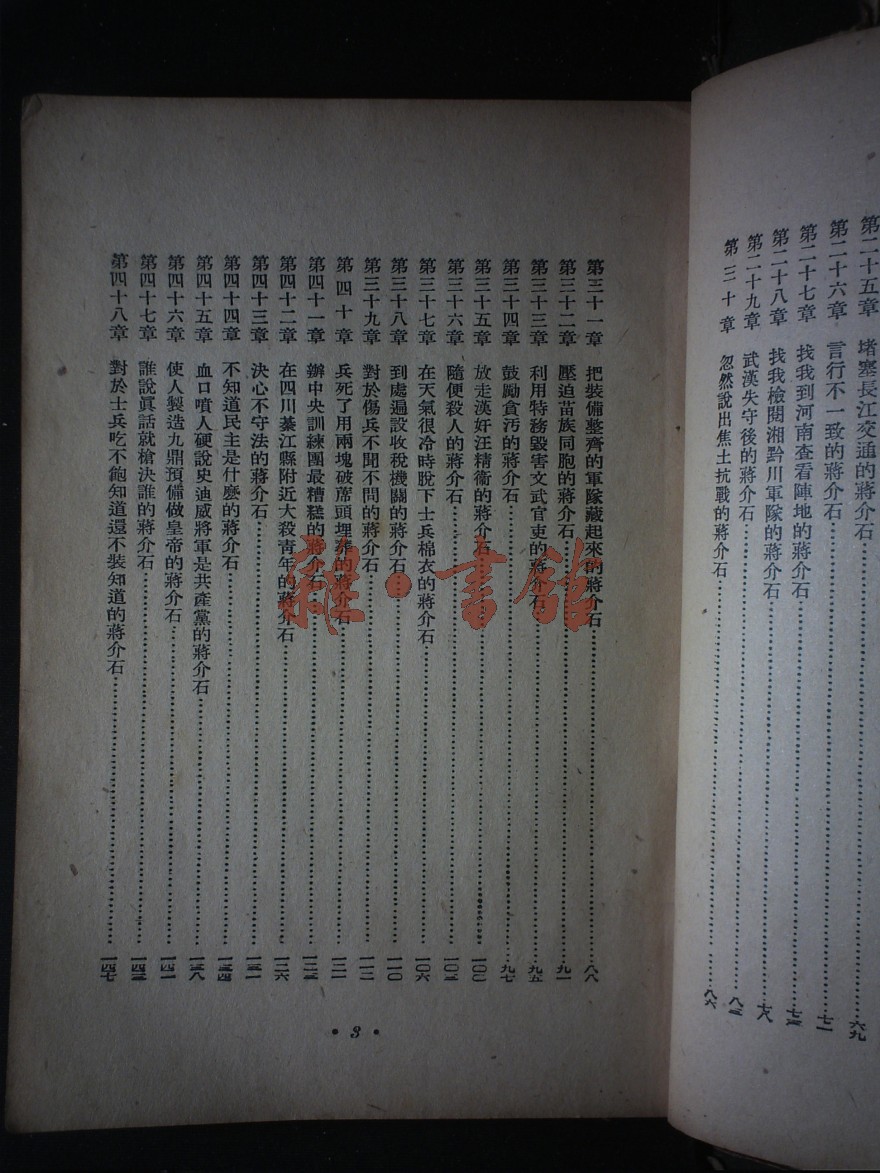 第二十五章 堵塞長江交通的蔣介石……六九
第二十六章 言行不一致的蔣介石……七一
第二十七章 找我到河南查看陣地的蔣介石……七三
第二十八章 找我檢閱湘黔川軍隊的蔣介石……七八
第二十九章 武漢失守後的蔣介石……八三
第三十章 忽然說出焦土抗戰的蔣介石……八六
第三十一章 把裝備整齊的軍隊藏起來的蔣介石……八八
第三十二章 壓迫苗族同胞的蔣介石……九一
第三十三章 利用特務毀害文武官吏的蔣介石……九五
第三十四章 鼓勵貪污的蔣介石……九七
第三十五章 放走漢奸汪精衞的蔣介石……一〇〇
第三十六章 隨便殺人的蔣介石……一〇三
第三十七章 在天氣很冷時脫下士兵棉衣的蔣介石……一〇六
第三十八章 到處遍設收稅機關的蔣介石……一一〇
第三十九章 對於傷兵不聞不問的蔣介石……一一二
第四十章 兵死了用兩塊破蓆頭埋葬的蔣介石……一二一
第四十一章 辦中央訓練團最糟糕的蔣介石……一二三
第四十二章 在四川綦江縣附近大殺靑年的蔣介石……一二六
第四十三章 決心不守法的蔣介石……一三一
第四十四章 不知道民主是什麼的蔣介石……一三四
第四十五章 血口噴人硬說史迪威將軍是共產黨的蔣介石……一三八
第四十六章 使人製造九鼎預備做皇帝的蔣介石……一四一
第四十七章 誰說眞話就槍決誰的蔣介石……一四三
第四十八章 對於士兵吃不飽知道還不裝知道的蔣介石……一四七
• 3 •
雜·書館